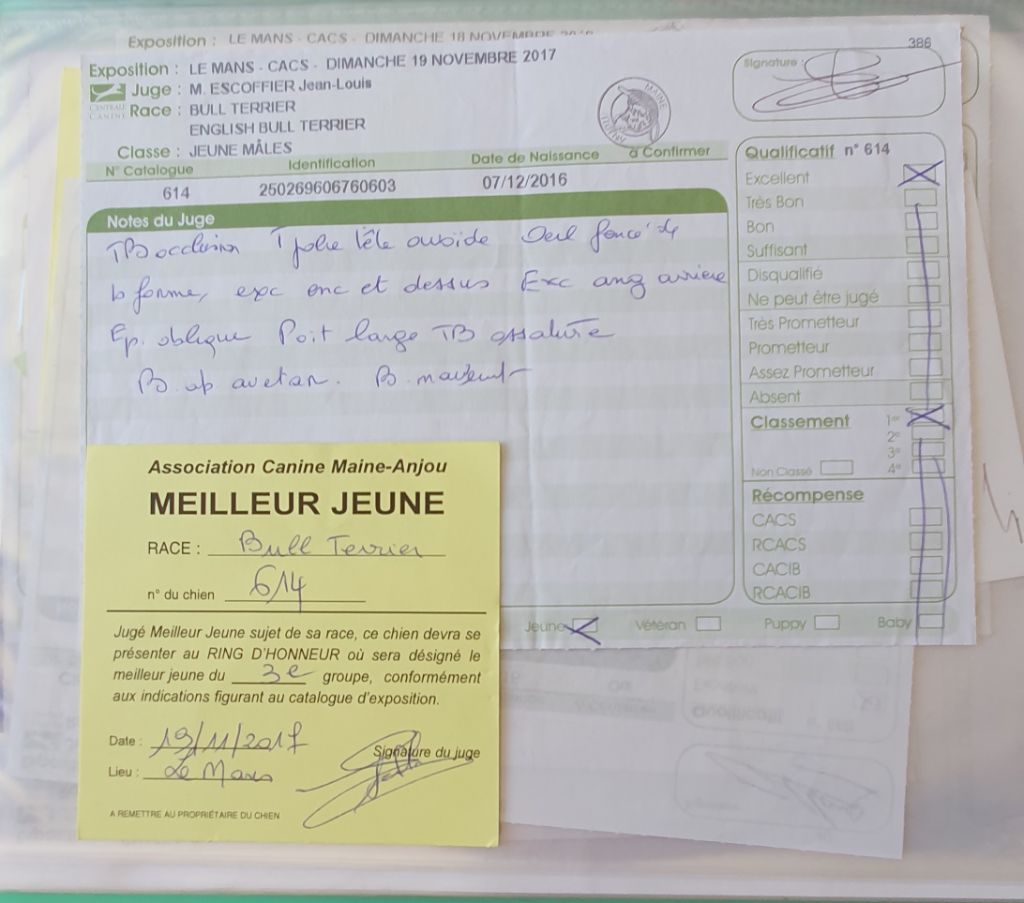 Exposition : LE MANS - CACS - DIMANCHE 18 NOVEMBRE
386
Exposition : LE MANS - CACS - DIMANCHE 19 NOVEMBRE 2017
Signature :
Juge : M. ESCOFFIER Jean-Louis
CENTRALE CANINE
Race : BULL TERRIER
ENGLISH BULL TERRIER
MAINE
Classe : JEUNE MÂLES
N° Catalogue Identification Date de Naissance à Confirmer
614 250269606760603 07/12/2016
Notes du Juge
TB occlusion jolie tête ovoïde Oeil foncé
b forme, exc enc et dessus Exc ang arrière
Ep. oblique Poit large TB ossature
B. ap avet an. B. mouvement
Qualificatif n° 614
Excellent
Très Bon
Bon
Suffisant
Disqualifié
Ne peut être jugé
Très Prometteur
Prometteur
Assez Prometteur
Absent
Classement 1er
2e
3e
Non Classé 4e
Récompense
CACS
RCACS
CACIB
RCACIB
Jeune Vétéran Puppy Baby
Association Canine Maine-Anjou
MEILLEUR JEUNE
RACE : Bull Terrier
n° du chien 614
Jugé Meilleur Jeune sujet de sa race, ce chien devra se
présenter au RING D'HONNEUR où sera désigné le
meilleur jeune du 3e groupe, conformément
aux indications figurant au catalogue d'exposition.
Date : 19/11/2017
Signature du juge
Lieu : Le Mans
A REMETTRE AU PROPRIÉTAIRE DU CHIEN